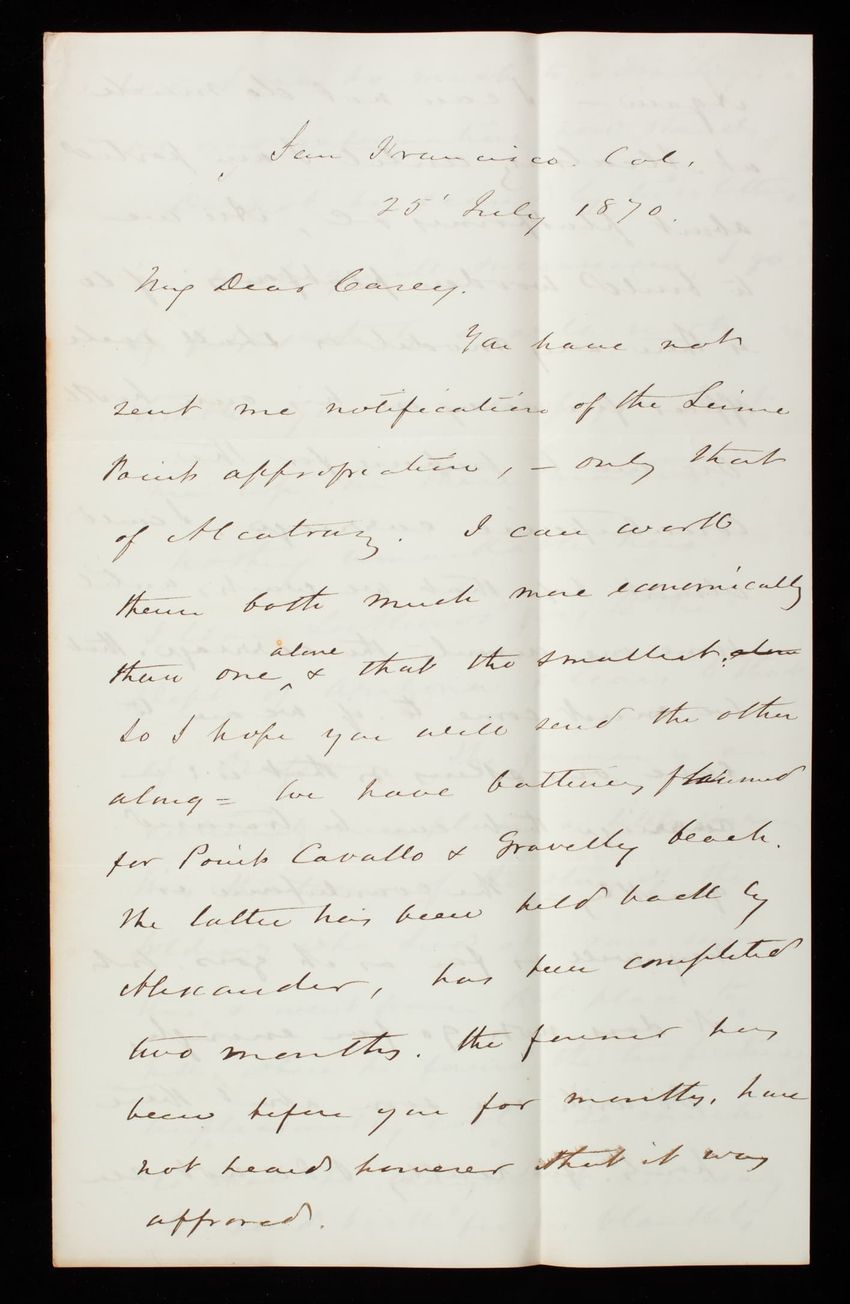 San Francisco. Cal.
25' July 1870.
My Dear Casey.
You have not
sent me notification of the Lime
Point appropriation, – only that
of Alcatraz. I can work
them both much more economically
than one alone & that the smallest. alone
So I hope you will send the other
along = We have batteries planned
for Point Cavallo & Gravelly beach.
The latter has been held back by
Alexander, has been completed
two months. The former has
been before you for months, have
not heard however that it was
approved.